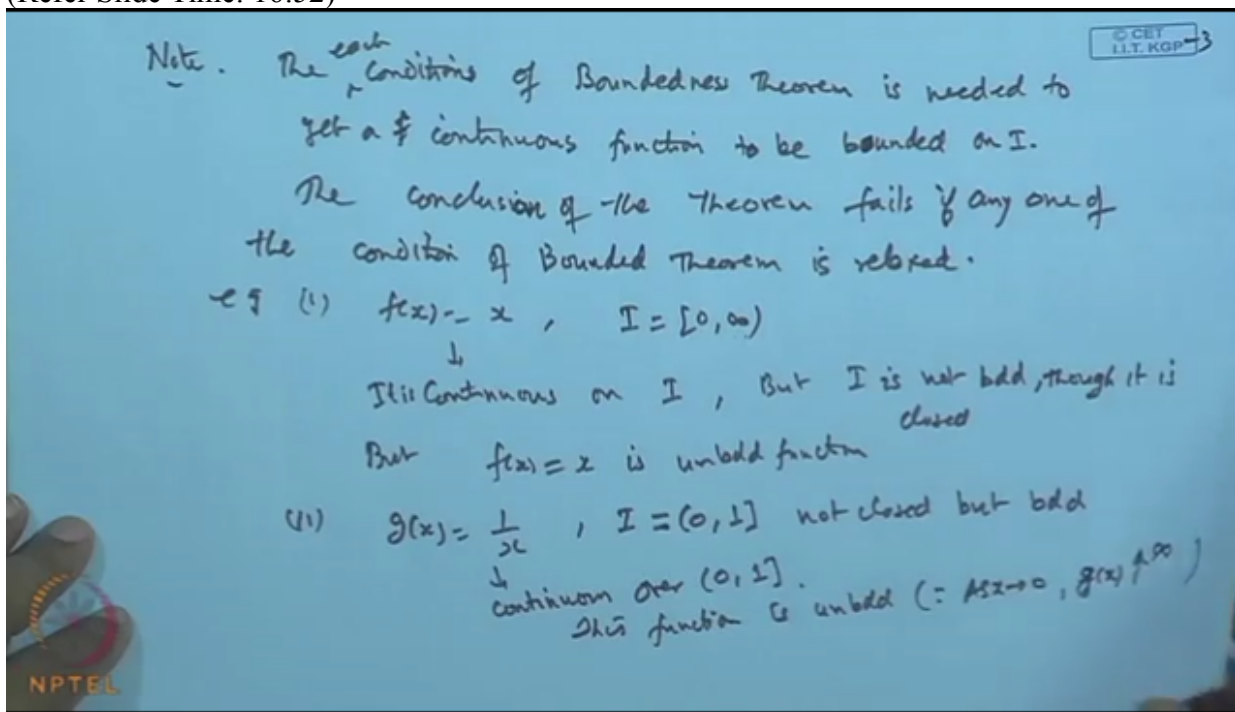 (Refer Slide Time: 16:32)
© CET
I.I.T. KGP
-3
Note. The each conditions of Boundedness Theorem is needed to
get a continuous function to be bounded on I.
The conclusion of the Theorem fails if any one of
the condition of Bounded Theorem is relaxed.
eg (i) f(x) = x , I = [0, ∞)
↓
It is Continuous on I , But I is not bdd, though it is
closed
But f(x) = x is unbdd function
(ii) g(x) = 1/x , I = (0, 1] not closed but bdd
↓
continuous over (0, 1].
This function is unbdd (∵ As x→0, g(x) ↑ ∞)
NPTEL